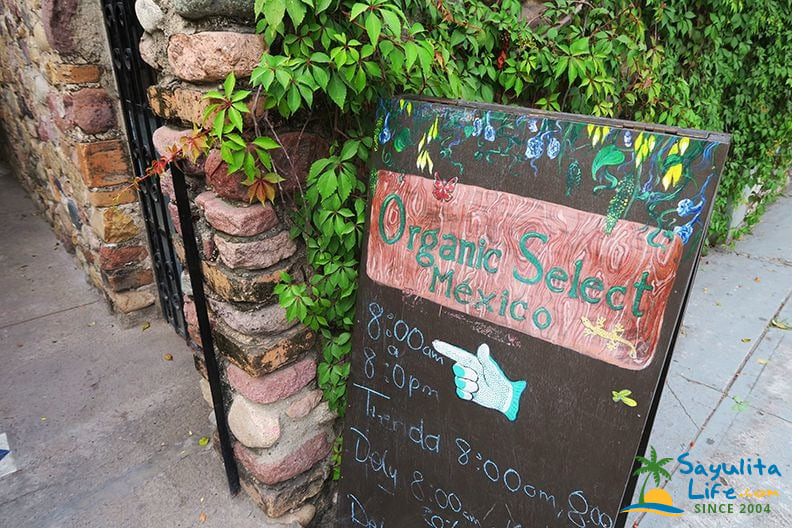 Organic Select
México
8:00am
a
8:0pm
Tienda 8:00am, 8:00
8:00am
Sayulita
Life.com
SINCE 2004